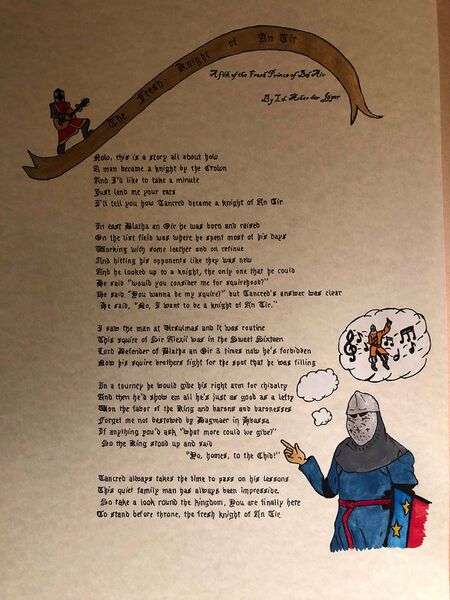 The Fresh Knight of An Tir
A filk of the Fresh Prince of Bel Air
By Ld
Now, this is a story all about how
A man became a knight by the Crown
And I'd like to take a minute
Just lend me your ears
I'll tell you how Tancred became a knight of An Tir
In east Blatha an Oir he was born and raised
On the list field was where he spent most of his days
Working with some leather and on retinue
And hitting his opponents like they was new
And he looked up to a knight, the only one that he could
He said "would you consider me for squirehood?"
He said "You wanna be my squire?" but Tancred's answer was clear
He said, "No, I want to be a knight of An Tir."
I saw the man at Ursulmas and It was routine
This squire of Sir Alexii was in the Sweet Sixteen
Lord Defender of Blatha an Oir 3 times now he's forbidden
Now his squire brothers fight for the spot that he was filling
In a tourney he would give his right arm for chivalry
And then he'd show em all he's just as good as a lefty
Won the favor of the King and barons and baronesses
Forget me not bestowed by Dagmaer in Hvassa
If anything you'd ask "what more could we give?"
So the King stood up and said
"Yo, homes, to the Chiv!"
Tancred always takes the time to pass on his lessons
This quiet family man has always been impressive.
So take a look round the kingdom, You are finally here
To stand before throne, the fresh knight of An Tir.